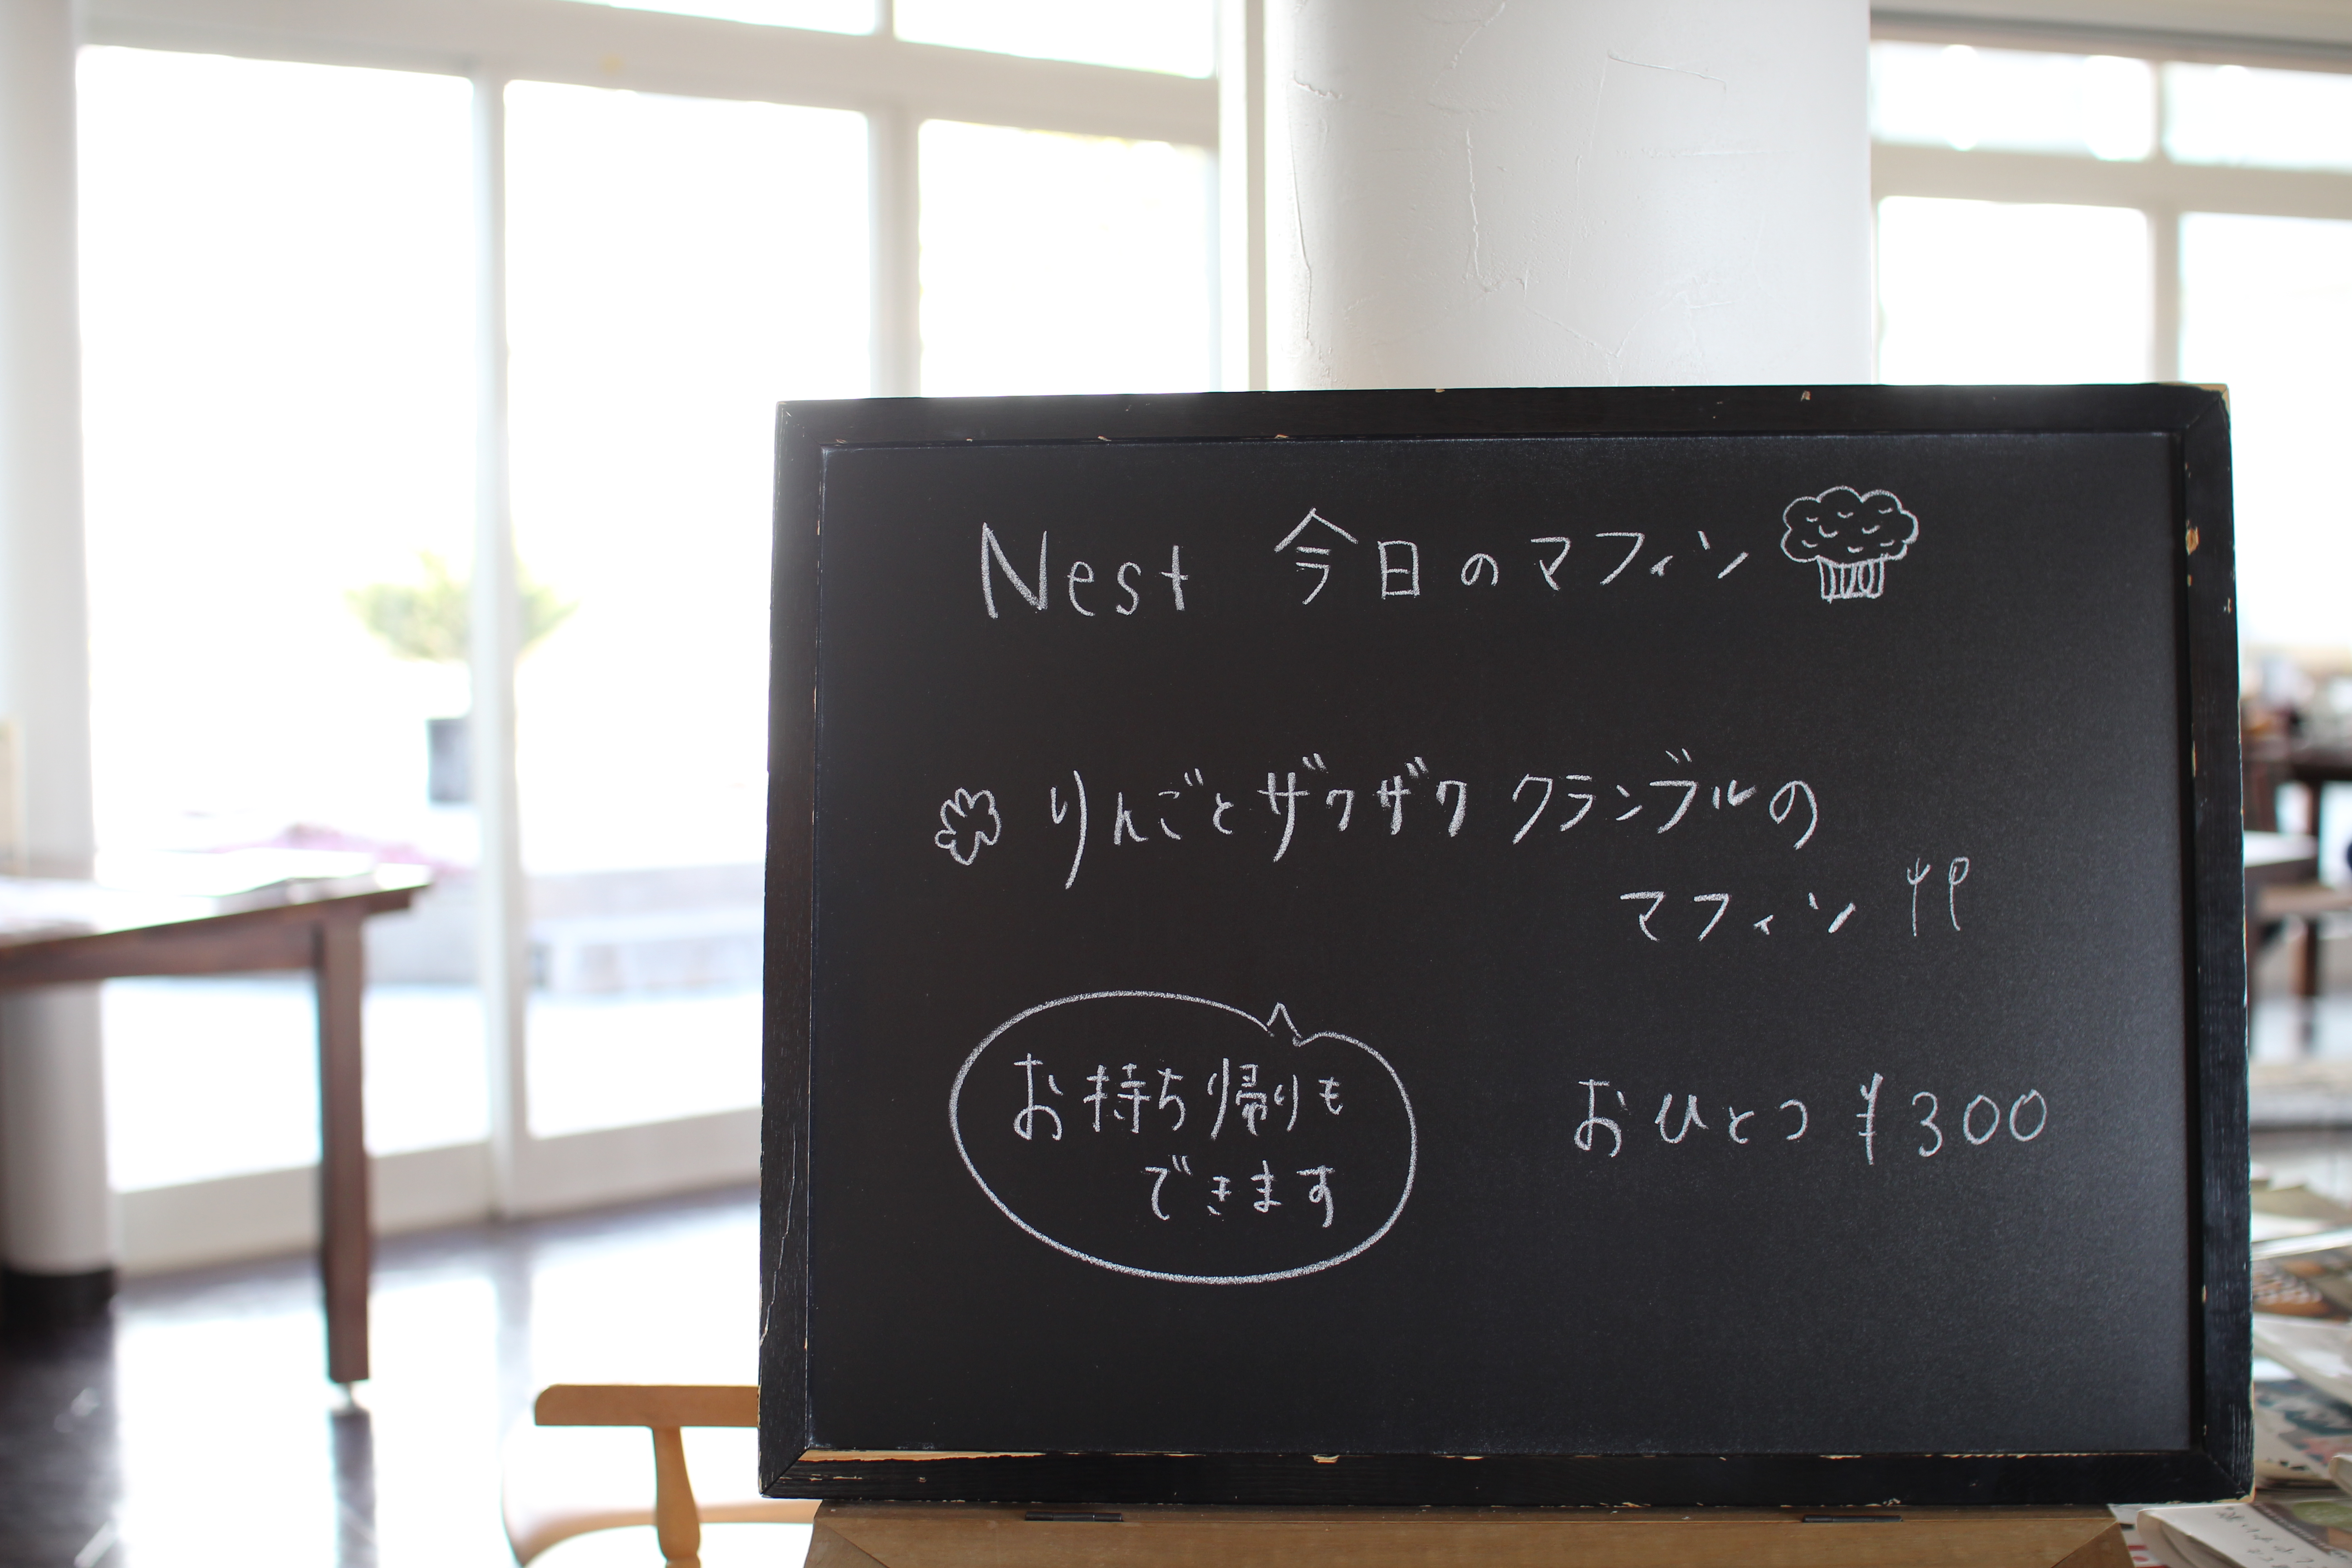 Nest 今日のマフィン
りんごとザクザククランブルの
マフィン
お持ち帰りも
できます
おひとつ ¥300